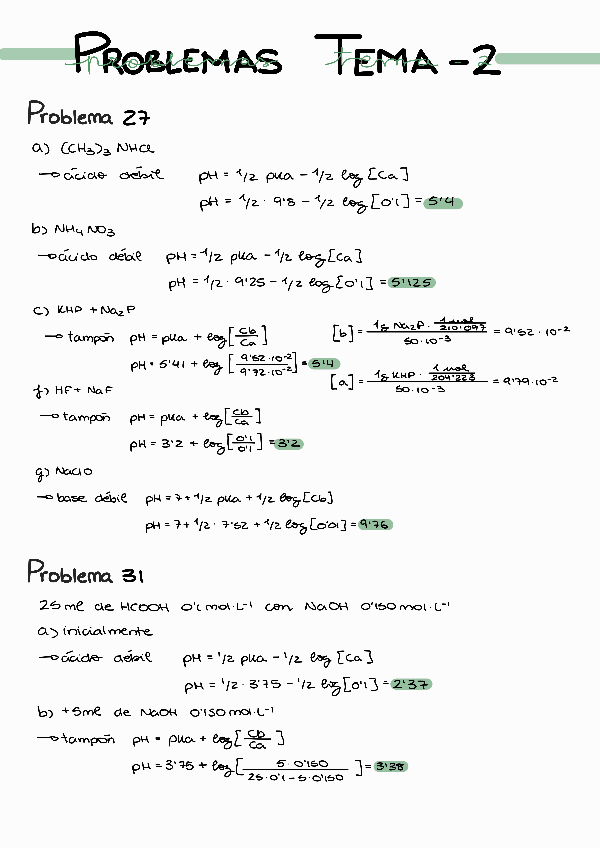 PROBLEMAS TEMA - 2
problemas tema 2
Problema 27
a) (CH₃)₃ NHCl
→ ácido débil pH = 1/2 pka - 1/2 log [Ca]
pH = 1/2 · 9'8 - 1/2 log [0'1] = 5'4
b) NH₄ NO₃
→ ácido débil pH = 1/2 pka - 1/2 log [Ca]
pH = 1/2 · 9'25 - 1/2 log [0'1] = 5'125
c) KHP + Na₂P
→ tampón pH = pka + log [Cb/Ca] [b] = (1g Na₂P · 1 mol/210'097)/(50·10⁻³) = 9'52 · 10⁻²
pH = 5'41 + log [9'52·10⁻²/9'72·10⁻²] = 5'4 [a] = (1g KHP · 1 mol/204'223)/(50·10⁻³) = 9'79·10⁻²
f) HF + NaF
→ tampón pH = pka + log [Cb/Ca]
pH = 3'2 + log [0'1/0'1] = 3'2
g) NaClO
→ base débil pH = 7 + 1/2 pka + 1/2 log [Cb]
pH = 7 + 1/2 · 7'52 + 1/2 log [0'01] = 9'76
Problema 31
25 ml de HCOOH 0'1 mol·L⁻¹ con NaOH 0'150 mol·L⁻¹
a) inicialmente
→ ácido débil pH = 1/2 pka - 1/2 log [Ca]
pH = 1/2 · 3'75 - 1/2 log [0'1] = 2'37
b) +5ml de NaOH 0'150 mol·L⁻¹
→ tampón pH = pka + log [Cb/Ca]
pH = 3'75 + log [5·0'150/(25·0'1 - 5·0'150)] = 3'38